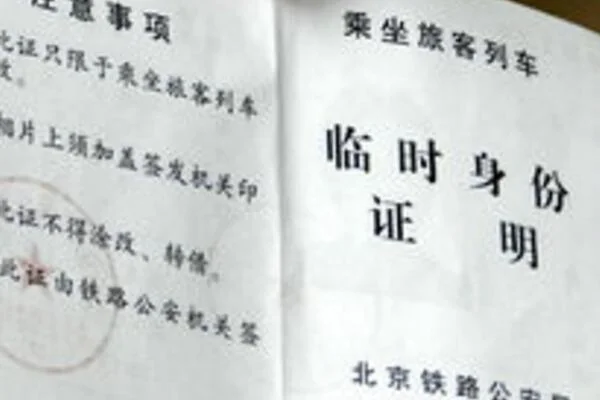 注意事项
此证只限于乘坐旅客列车
效。
相片上须加盖签发机关印
此证不得涂改、转借。
此证由铁路公安机关签
乘坐旅客列车
临时身份
证明
北京铁路公安局